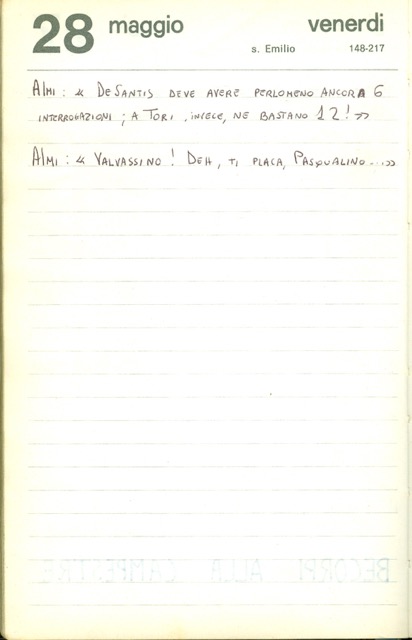 28 maggio venerdi
s. Emilio 148-217
Almi : « De Santis deve avere perlomeno ancora 6
interrogazioni ; a Tori , invece, ne bastano 12! »
Almi : « Valvassino ! Deh , ti placa, Pasqualino... »
BECORPI ALLA CAMPESTRE